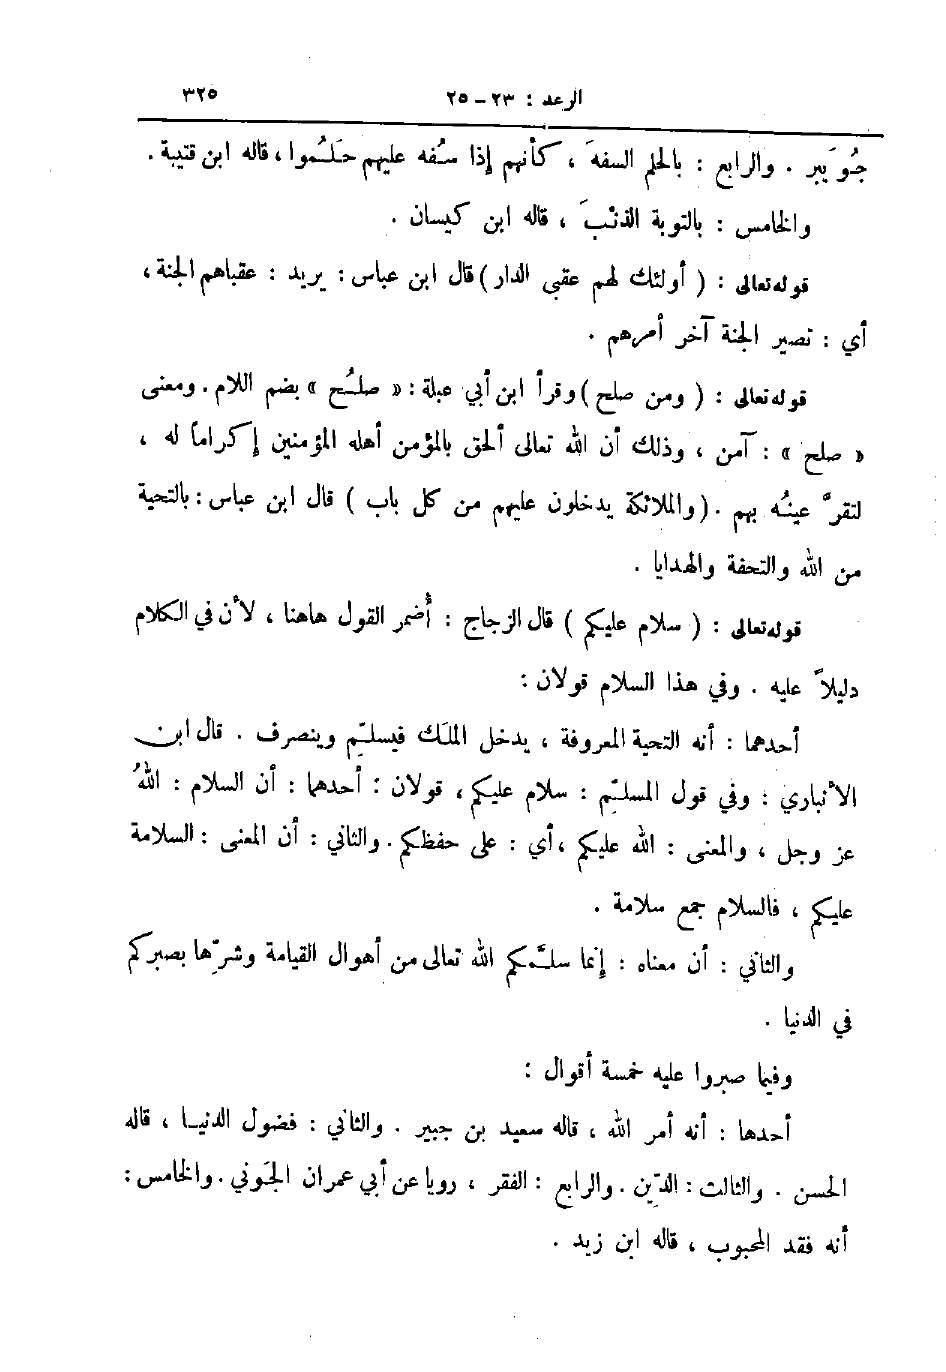 الرعد : ٢٣ - ٢٥ ٣٢٥
جُوَيبر . والرابع : بالحلم السفهَ ، كأنهم إذا سُفه عليهم حَلُموا ، قاله ابن قتيبة .
والخامس : بالتوبة الذنْبَ ، قاله ابن كيسان .
قوله تعالى : ( أولئك لهم عقبى الدار ) قال ابن عباس : يريد : عقباهم الجنة ،
أي : تصير الجنة آخر أمرهم .
قوله تعالى : ( ومن صلح ) وقرأ ابن أبي عبلة : « صلُح » بضم اللام . ومعنى
« صلح » : آمن ، وذلك أن الله تعالى ألحق بالمؤمن أهله المؤمنين إكراماً له ،
لتقرَّ عينُه بهم . ( والملائكة يدخلون عليهم من كل باب ) قال ابن عباس : بالتحية
من الله والتحفة والهدايا .
قوله تعالى : ( سلام عليكم ) قال الزجاج : أُضمر القول هاهنا ، لأن في الكلام
دليلاً عليه . وفي هذا السلام قولان :
أحدهما : أنه التحية المعروفة ، يدخل الملَك فيسلِّم وينصرف . قال ابن
الأنباري : وفي قول المسلِّم : سلام عليكم ، قولان : أحدهما : أن السلام : اللهُ
عز وجل ، والمعنى : الله عليكم ، أي : على حفظكم . والثاني : أن المعنى : السلامة
عليكم ، فالسلام جمع سلامة .
والثاني : أن معناه : إنما سلَّمكم الله تعالى من أهوال القيامة وشرِّها بصبركم
في الدنيا .
وفيما صبروا عليه خمسة أقوال :
أحدها : أنه أمر الله ، قاله سعيد بن جبير . والثاني : فضول الدنيا ، قاله
الحسن . والثالث : الدِّين . والرابع : الفقر ، رويا عن أبي عمران الجَوني . والخامس :
أنه فقد المحبوب ، قاله ابن زيد .